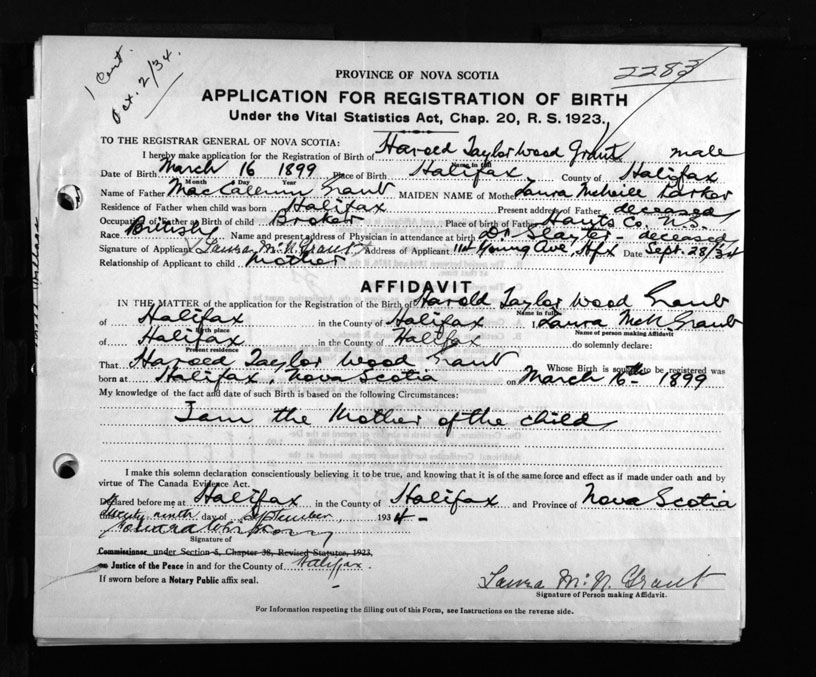 1 Cert.
Oct. 2/34.
2283
PROVINCE OF NOVA SCOTIA
APPLICATION FOR REGISTRATION OF BIRTH
Under the Vital Statistics Act, Chap. 20, R. S. 1923.
TO THE REGISTRAR GENERAL OF NOVA SCOTIA:
I hereby make application for the Registration of Birth of Harold Taylor Wood Grant male
Name in full
Date of Birth March 16 1899 Place of Birth Halifax County of Halifax
Month Day Year
Name of Father MacCallum Grant MAIDEN NAME of Mother Laura McNeill Parker
Residence of Father when child was born Halifax Present address of Father deceased
Occupation of Father at Birth of child Broker Place of birth of Father Hants Co. N.S.
Race British Name and present address of Physician in attendance at birth Dr Slayter - deceased
Signature of Applicant Laura McN. Grant Address of Applicant 114 Young Ave, Hfx Date Sept. 28/34
Relationship of Applicant to child Mother
AFFIDAVIT
IN THE MATTER of the application for the Registration of the Birth of Harold Taylor Wood Grant
Name in full
of Halifax in the County of Halifax I, Laura McN. Grant
Birth place Name of person making Affidavit
of Halifax in the County of Halifax do solemnly declare:
Present residence
That Harold Taylor Wood Grant Whose Birth is sought to be registered was
born at Halifax, Nova Scotia on March 16th - 1899
My knowledge of the fact and date of such Birth is based on the following Circumstances:
I am the Mother of the child
I make this solemn declaration conscientiously believing it to be true, and knowing that it is of the same force and effect as if made under oath and by
virtue of The Canada Evidence Act.
Declared before me at Halifax in the County of Halifax and Province of Nova Scotia
this twenty ninth day of September, 1934 -
Signature of
Commissioner under Section 5, Chapter 38, Revised Statutes, 1923,
or Justice of the Peace in and for the County of Halifax.
If sworn before a Notary Public affix seal.
Laura McN. Grant
Signature of Person making Affidavit.
For Information respecting the filling out of this Form, see Instructions on the reverse side.